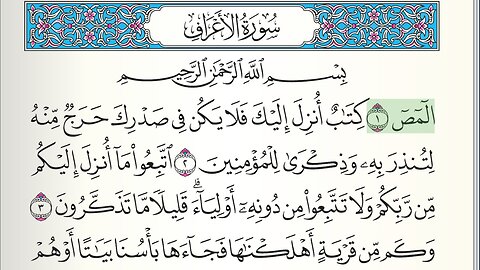 سُورَةُ الأَعْرَافِ
بِسْمِ اللَّهِ الرَّحْمَٰنِ الرَّحِيمِ
الٓمٓصٓ ١ كِتَٰبٌ أُنزِلَ إِلَيْكَ فَلَا يَكُن فِى صَدْرِكَ حَرَجٌ مِّنْهُ
لِتُنذِرَ بِهِۦ وَذِكْرَىٰ لِلْمُؤْمِنِينَ ٢ ٱتَّبِعُوا۟ مَآ أُنزِلَ إِلَيْكُم
مِّن رَّبِّكُمْ وَلَا تَتَّبِعُوا۟ مِن دُونِهِۦٓ أَوْلِيَآءَ ۗ قَلِيلًا مَّا تَذَكَّرُونَ ٣
وَكَم مِّن قَرْيَةٍ أَهْلَكْنَٰهَا فَجَآءَهَا بَأْسُنَا بَيَٰتًا أَوْ هُمْ